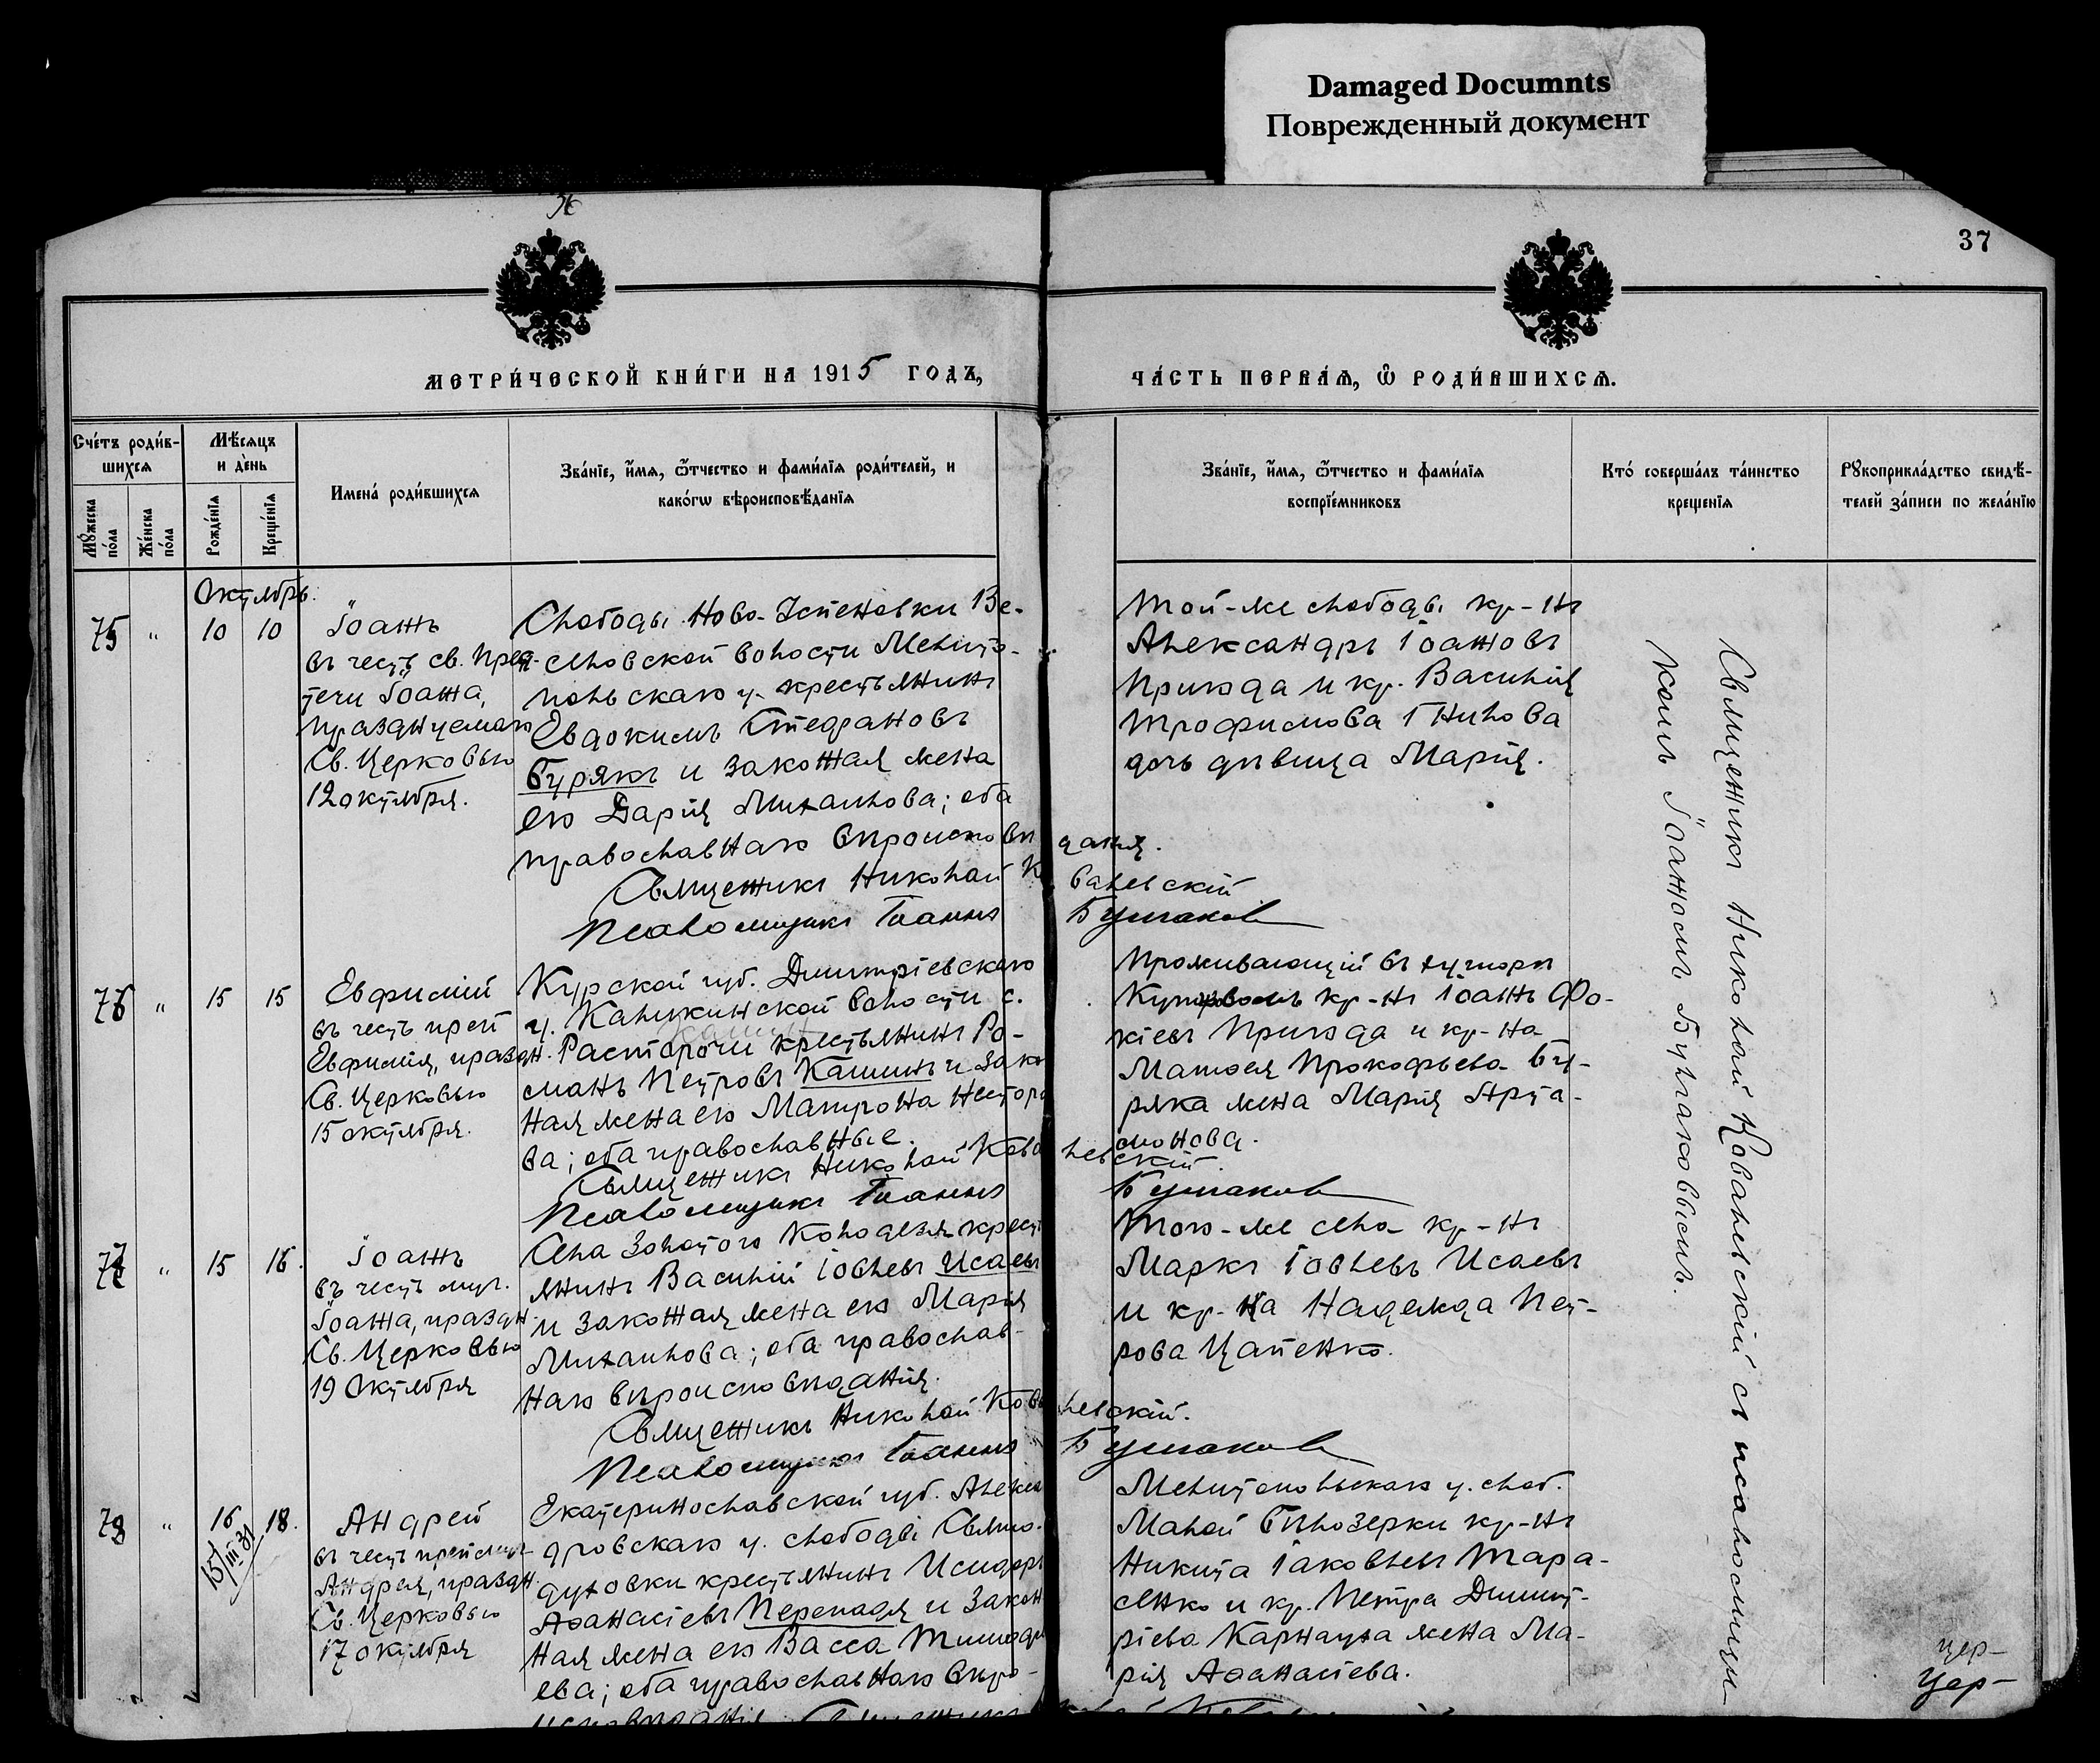 Damaged Documnts
Поврежденный документ
36
37
МЕТРИ́ЧЕСКОЙ КНИ́ГИ НА 1915 ГОДЪ,
ЧА́СТЬ ПЕРВА́Ѧ, Ѽ РОДИ́ВШИХСѦ.
Сче́тъ роди́в-
шихсѧ
Мꙋ́жеска по́ла
Же́нска по́ла
Мѣ́сѧцъ
и де́нь
Рожде́нїѧ
Креще́нїѧ
Имена́ роди́вшихсѧ
Зва́нїе, и́мѧ, ѻ҆́тчество и фами́лїѧ роди́телей, и
како́гѡ вѣроисповѣ́данїѧ
Зва́нїе, и́мѧ, ѻ҆́тчество и фами́лїѧ
воспрїе́мниковъ
Кто́ соверша́лъ та́инство
крещенїѧ
Рꙋкоприкла́дство свидѣ́-
телей за́писи по жела́нїю
Октябрь.
75 " 10 10
Іоаннъ
въ честь св. Пред-
течи Іоанна,
празднуемаго
Св. Церковью
12 октября.
Слободы Ново-Успеновки Ве-
селовской волости Мелито-
польскаго у. крестьянинъ
Евдокимъ Стефановъ
Бурякъ и законная жена
его Дарія Михаилова; оба
православнаго вѣроисповѣданія.
Священникъ Николай Ковалевскій
Псаломщикъ Іоаннъ Булгаковъ
Той-же слободы кр-нъ
Александръ Іоанновъ
Пригода и кр. Василія
Трофимова Гнилова
дочь дѣвица Марія.
76 " 15 15
Евфимій
въ честь преп
Евфимія, праздн.
Св. Церковью
15 октября.
Курской губ. Димитріевскаго
у. Капыкинской волости с.
Расторочи крестьянинъ Ро-
манъ Петровъ Кашинъ и закон
ная жена его Матрона Несторо
ва; оба православные.
Священникъ Николай Ковалевскій.
Псаломщикъ Іоаннъ Булгаковъ
Проживающій въ хуторѣ
кр-нъ Іоаннъ Фо-
кіевъ Пригода и кр-на
Матвея Прокофьева Бу-
ряка жена Марія Арта-
монова.
77 " 15 16.
Іоаннъ
въ честь муч.
Іоанна, праздн.
Св. Церковью
19 Октября
Села Золотого Колодезя кресть
янинъ Василій Іовлевъ Исаевъ
и законная жена его Марія
Михаилова; оба православ-
наго вѣроисповѣданія.
Священникъ Николай Ковалевскій.
Псаломщикъ Іоаннъ Булгаковъ
Того-же села кр-нъ
Маркъ Іовлевъ Исаевъ
и кр-ка Надежда Пет-
рова Цапенко.
78 " 16 18.
15/III 31
Андрей
въ честь преп. муч.
Андрея, праздн.
Св. Церковью
17 октября
Екатеринославской губ. Алексан
дровскаго у. слободы Свято-
духовки крестьянинъ Исидоръ
Аѳанасіевъ Перепадя и закон
ная жена его Васса Тимоѳе
ева; оба православнаго вѣро-
исповѣданія. Священникъ
Мелитопольскаго у. слоб.
Малой Бѣлозерки кр-нъ
Никита Іаковлевъ Тара-
сенко и кр. Петра Димит-
ріева Карнауха жена Ма-
рія Аѳанасіева.
Священникъ Николай Ковалевскій съ псаломщи-
комъ Іоанномъ Булгаковымъ.
цер-
Цер-